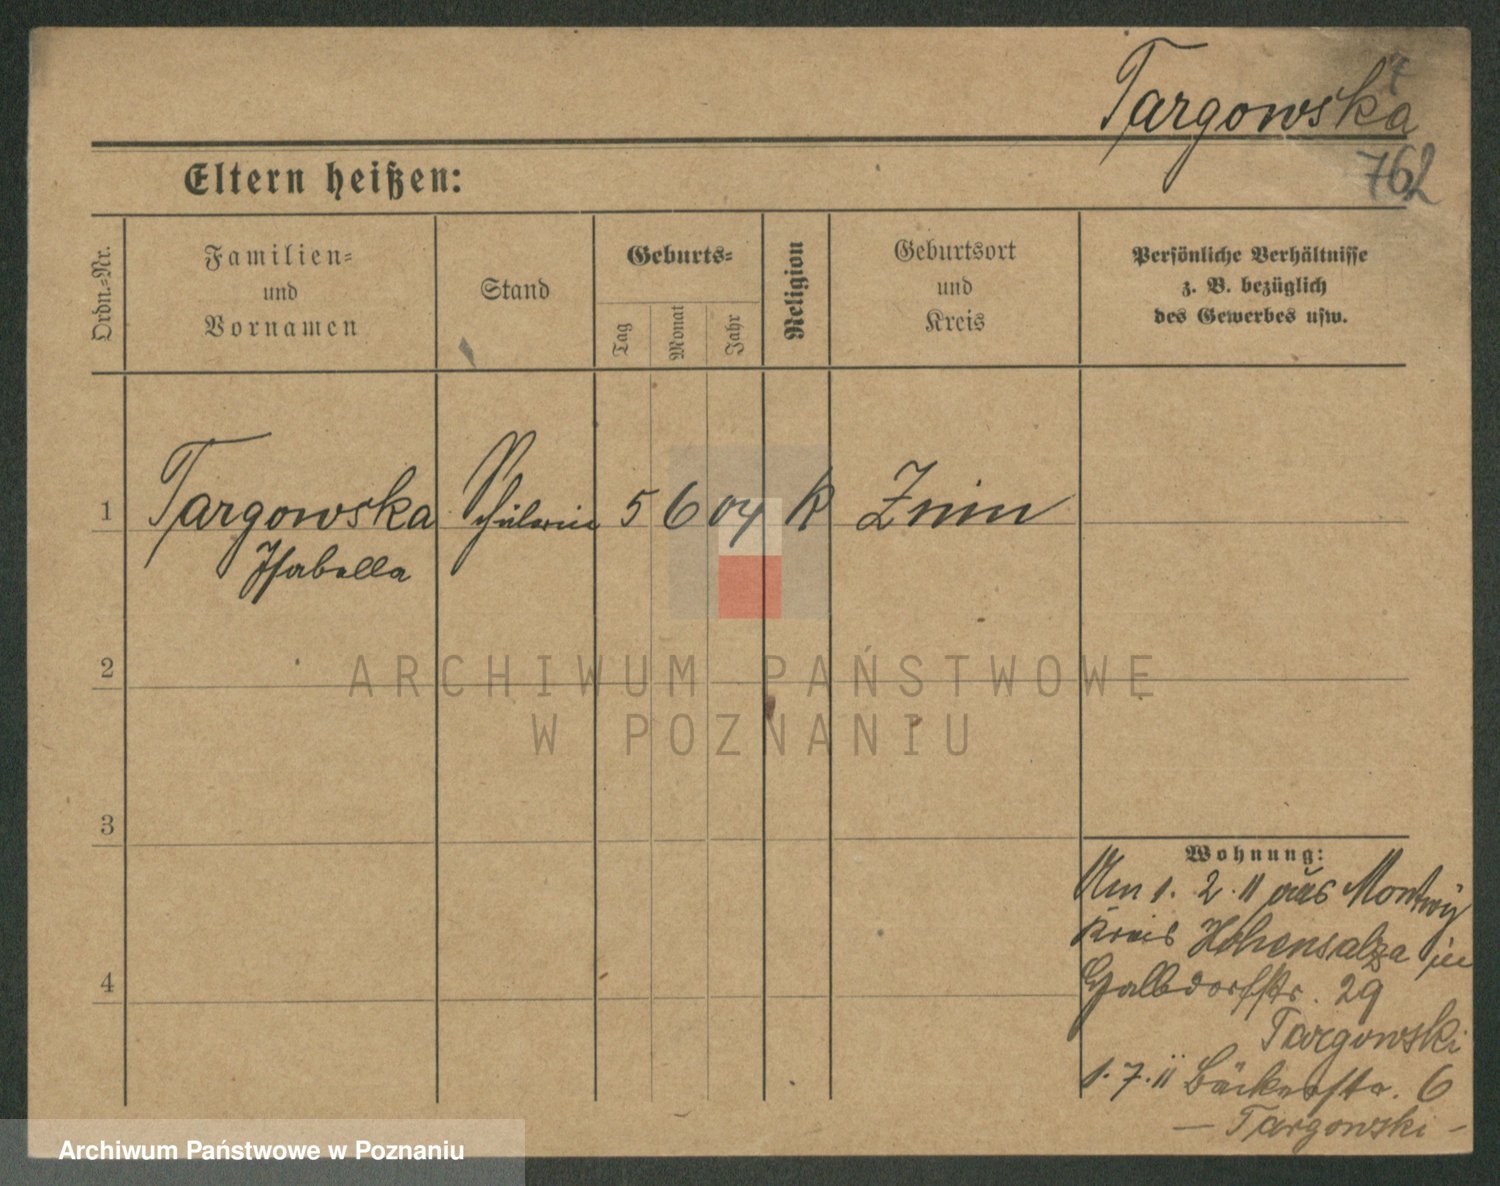 Targowska
762
Eltern heißen:
Ordn.=Nr.
Familien=
und
Vornamen
Stand
Geburts=
Tag
Monat
Jahr
Religion
Geburtsort
und
Kreis
Persönliche Verhältnisse
z. B. bezüglich
des Gewerbes usw.
1 Targowska Schülerin 5 6 04 K Znin
Isabella
2
3
4
Wohnung:
Am 1. 2. 11 aus Montwy
Kreis Hohensalza in
Halbdorfstr. 29
Targowski
1. 7. 11 Bäckerstr. 6
— Targowski —
ARCHIWUM PAŃSTWOWE
W POZNANIU
Archiwum Państwowe w Poznaniu